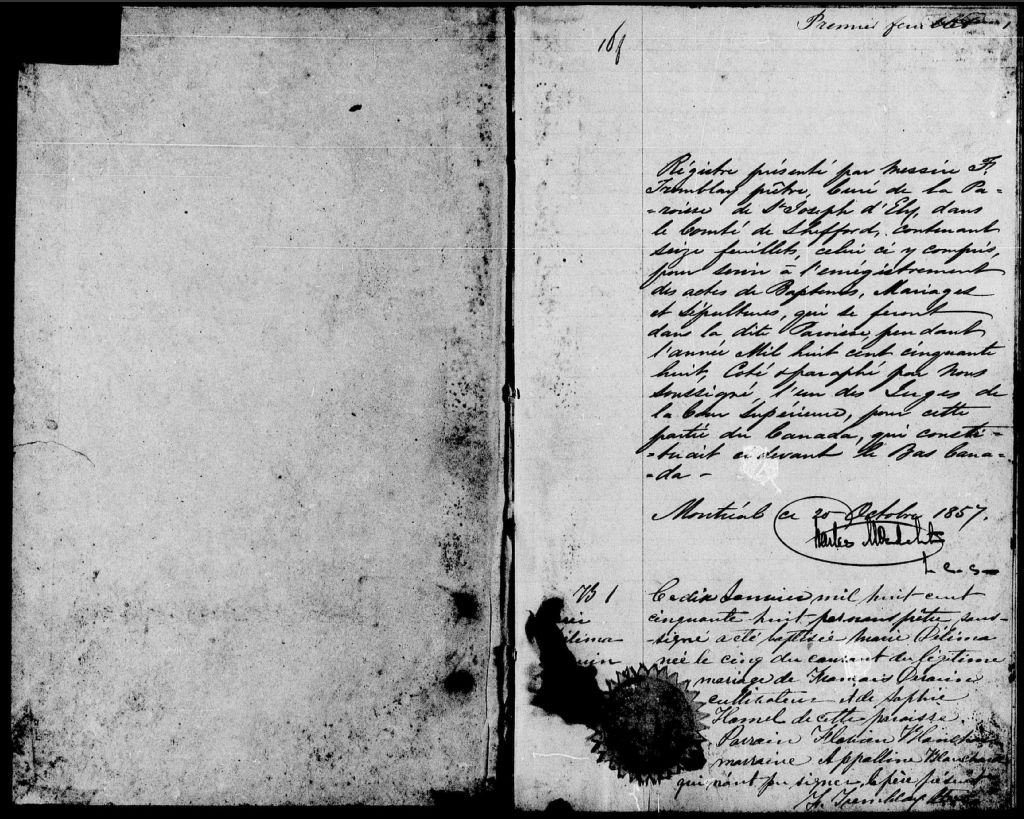 Premier feuillet
Régistre présenté par Messire F.
Tremblay prêtre, Curé de la Pa-
-roisse de St Joseph d'Ely, dans
le Comté de Shefford, contenant
seize feuillets, celui ci y compris,
pour servir à l'enrégistrement
des actes de Baptêmes, Mariages
et Sépultures, qui se feront
dans la dite Paroisse, pendant
l'année Mil huit cent cinquante
huit, Coté & paraphé par Nous
soussigné, l'un des Juges de
la Cour Supérieure, pour cette
partie du Canada, qui consti-
-tuait ci devant le Bas Cana-
-da -
Montréal ce 20 Octobre 1857.
Charles Mondelet
J. C. S.
B 1
Ce dix Janvier mil huit cent
cinquante huit par nous prêtre sous-
-signé a été baptisée Marie Délima
née le cinq du courant du légitime
mariage de François
cultivateur et de Sophie
Hamel de cette paroisse.
Parrain
marraine Appolline Blanchard
qui n'ont pu signer, le père présent
F. Tremblay Ptre